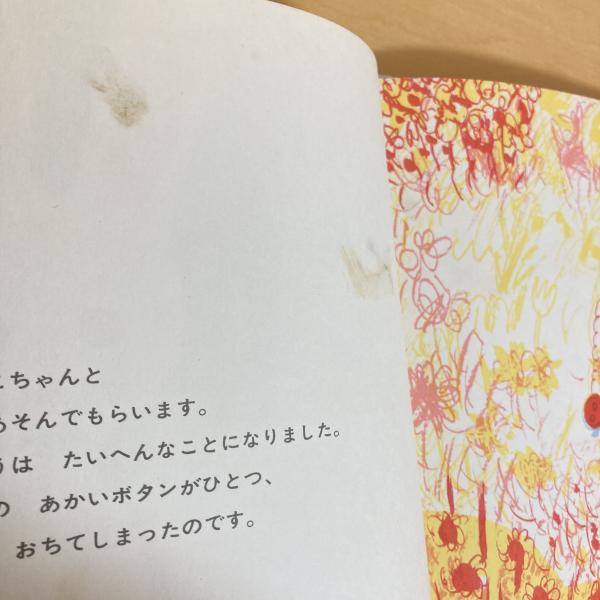 ちゃんと
そんでもらいます。
は　たいへんなことになりました。
の　あかいボタンがひとつ、
おちてしまったのです。